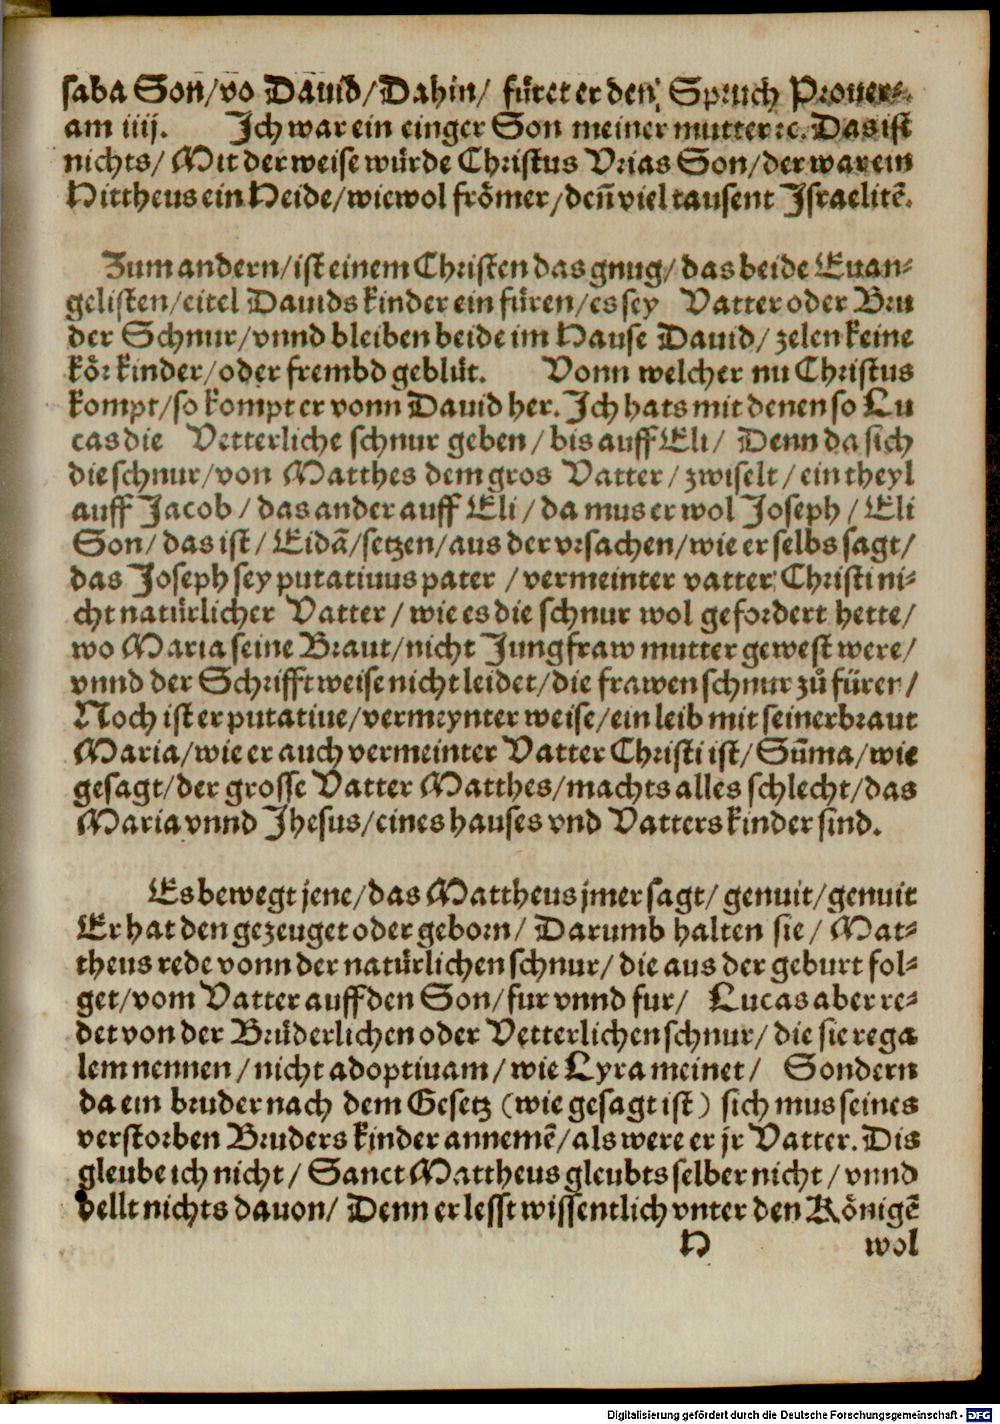 saba Son/vo Dauid/Dahin/ füret er den Spruch Prouer⸗
am iiij. Ich war ein einger Son meiner mutter ꝛc. Das ist
nichts/ Mit der weise würde Christus Vrias Son/der war ein
Hittheus ein Heide/wiewol frömer/deñ viel tausent Israelitē.
Zum andern/ist einem Christen das gnug/ das beide Euan⸗
gelisten/eitel Dauids kinder ein füren/es sey Vatter oder Bru
der Schnur/vnnd bleiben beide im Hause Dauid/ zelen keine
kör kinder/oder frembd geblüt. Vonn welcher nu Christus
kompt/so kompt er vonn Dauid her. Ich hats mit denen so Lu
cas die Vetterliche schnur geben/bis auff Eli/ Denn da sich
die schnur/von Matthes dem gros Vatter/ zwiselt/ ein theyl
auff Jacob/das ander auff Eli/da mus er wol Joseph/ Eli
Son/das ist/Eidā/setzen/aus der vrsachen/wie er selbs sagt/
das Joseph sey putatiuus pater /vermeinter vatter Christi ni⸗
cht natürlicher Vatter/ wie es die schnur wol gefordert hette/
wo Maria seine Braut/nicht Jungfraw mutter gewest were/
vnnd der Schrifft weise nicht leidet/die frawen schnur zů füren/
Noch ist er putatiue/vermeynter weise/ein leib mit seiner braut
Maria/wie er auch vermeinter Vatter Christi ist/Sūma/wie
gesagt/der grosse Vatter Matthes/machts alles schlecht/das
Maria vnnd Jhesus/eines hauses vnd Vatters kinder sind.
Es bewegt jene/das Mattheus jmer sagt/ genuit/genuit
Er hat den gezeuget oder geborn/ Darumb halten sie/ Mat⸗
theus rede vonn der natürlichen schnur/ die aus der geburt fol⸗
get/vom Vatter auff den Son/fur vnnd fur/ Lucas aber re⸗
det von der Brüderlichen oder Vetterlichen schnur/ die sie rega
lem nennen/nicht adoptiuam/wie Lyra meinet/ Sondern
da ein bruder nach dem Gesetz (wie gesagt ist) sich mus seines
verstorben Bruders kinder annemē/als were er jr Vatter. Dis
gleube ich nicht/ Sanct Mattheus gleubts selber nicht/ vnnd
hellt nichts dauon/ Denn er lesst wissentlich vnter den Königē
H wol
Digitalisierung gefördert durch die Deutsche Forschungsgemeinschaft - DFG